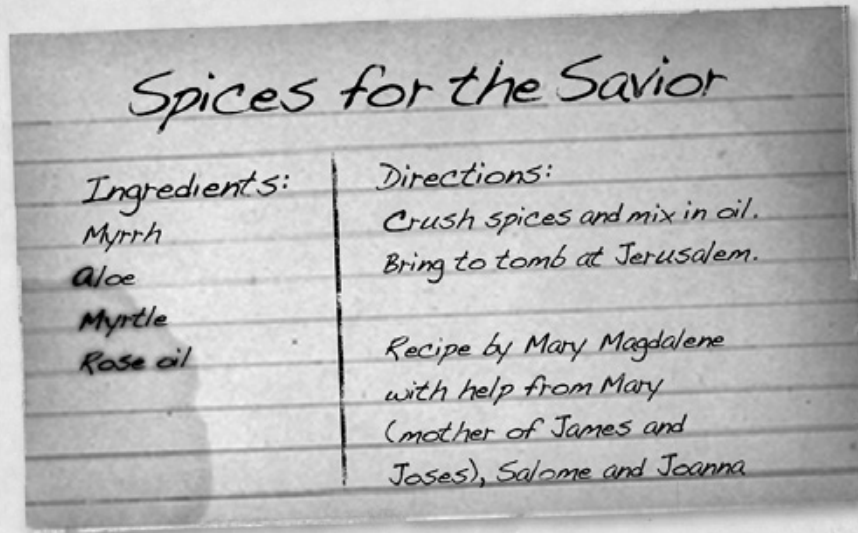 Spices for the Savior
Ingredients:
Myrrh
aloe
Myrtle
Rose oil
Directions:
Crush spices and mix in oil.
Bring to tomb at Jerusalem.
Recipe by Mary Magdalene
with help from Mary
(mother of James and
Joses), Salome and Joanna